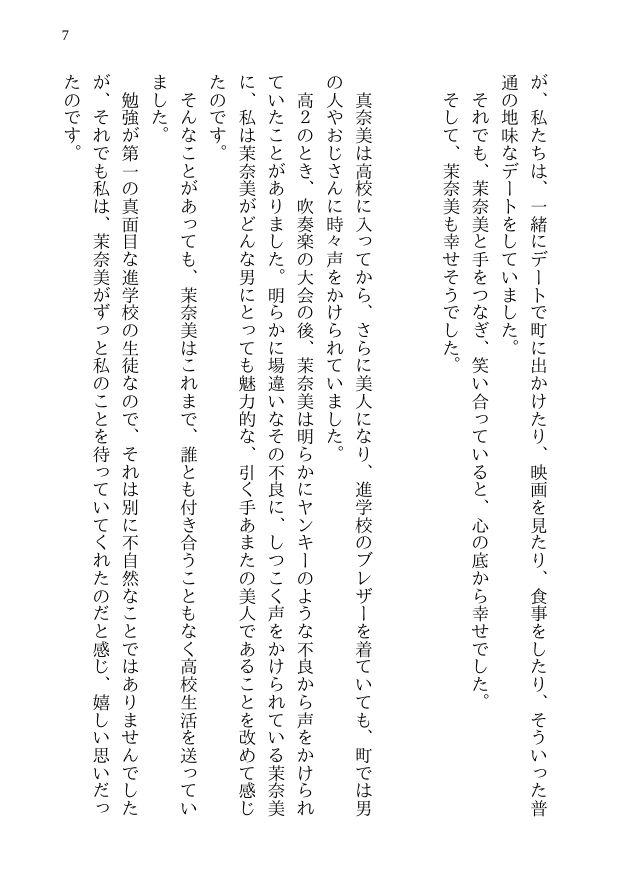 7
が、私たちは、一緒にデートで町に出かけたり、映画を見たり、食事をしたり、そういった普
通の地味なデートをしていました。
それでも、茉奈美と手をつなぎ、笑い合っていると、心の底から幸せでした。
そして、茉奈美も幸せそうでした。
真奈美は高校に入ってから、さらに美人になり、進学校のブレザーを着ていても、町では男
の人やおじさんに時々声をかけられていました。
高２のとき、吹奏楽の大会の後、茉奈美は明らかにヤンキーのような不良から声をかけられ
ていたことがありました。明らかに場違いなその不良に、しつこく声をかけられている茉奈美
に、私は茉奈美がどんな男にとっても魅力的な、引く手あまたの美人であることを改めて感じ
たのです。
そんなことがあっても、茉奈美はこれまで、誰とも付き合うこともなく高校生活を送ってい
ました。
勉強が第一の真面目な進学校の生徒なので、それは別に不自然なことではありませんでした
が、それでも私は、茉奈美がずっと私のことを待っていてくれたのだと感じ、嬉しい思いだっ
たのです。